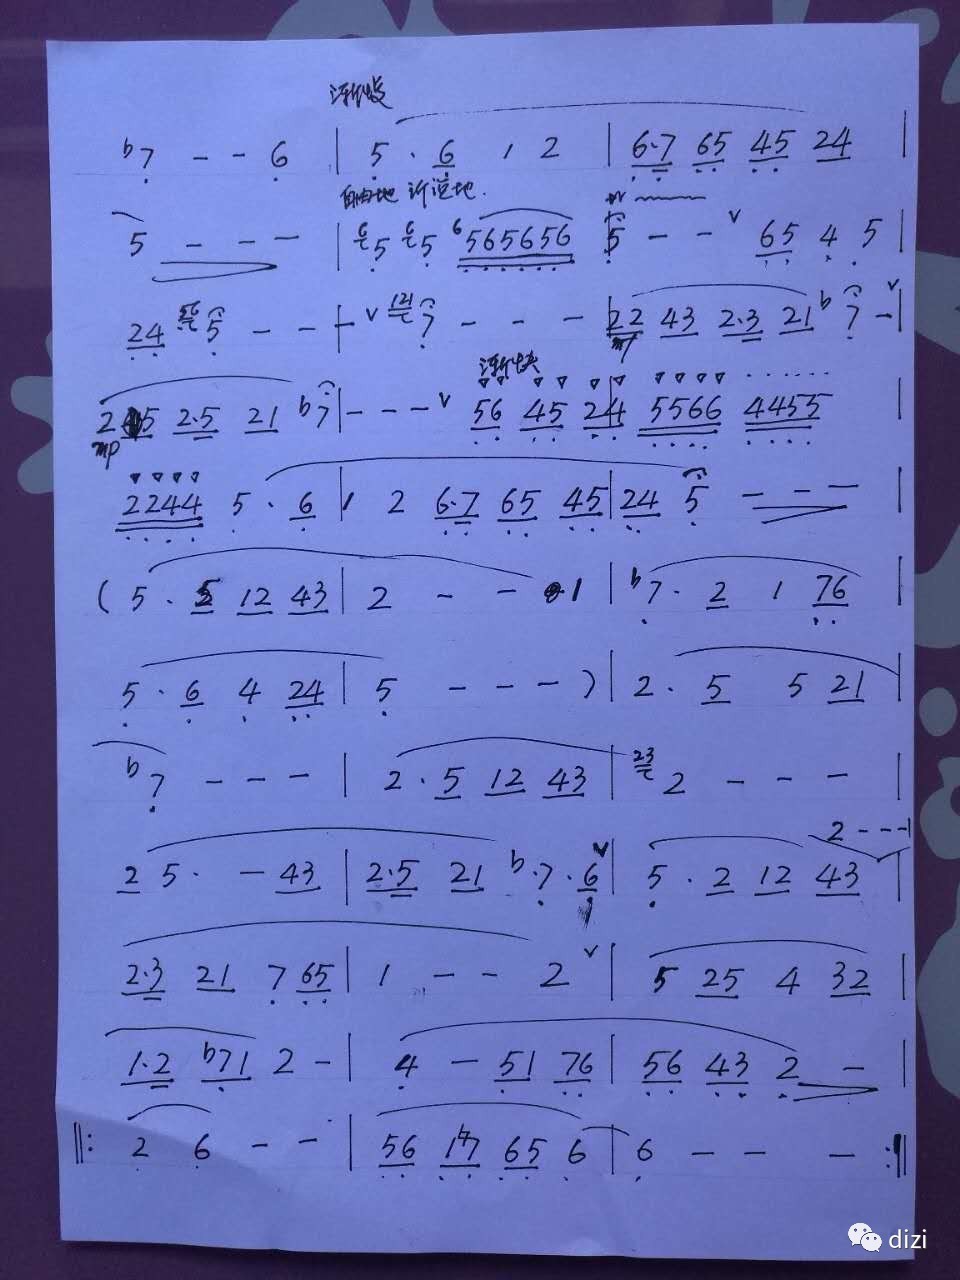 渐慢
b7 - - 6 | 5 · 6 1 2 | 6·7 65 45 24 |
自由地 诉说地
5 - - - | 65 65 6565656 | 5 - - v 65 4 5 |
24 565 - - | - v 1217 - - - | 22 43 2·3 21 b7 v - |
mf
渐快
245 2·5 21 b7 | - - - v 56 45 24 5566 4455
mp
2244 5 · 6 | 1 2 6·7 65 45 | 24 5 - - - |
( 5 · 5 12 43 | 2 - - 1 | b7 · 2 1 76 |
5 · 6 4 24 | 5 - - - ) | 2 · 5 5 21 |
b7 - - - | 2 · 5 12 43 | 232 - - - |
2 - - -
2 5 · - 43 | 2·5 21 b7 · 6 v | 5 · 2 12 43 |
2·3 21 7 65 | 1 - - 2 v | 5 25 4 32 |
1·2 b71 2 - | 4 - 51 76 | 56 43 2 - |
‖: 2 6 - - | 56 17 65 6 | 6 - - - :‖
dizi